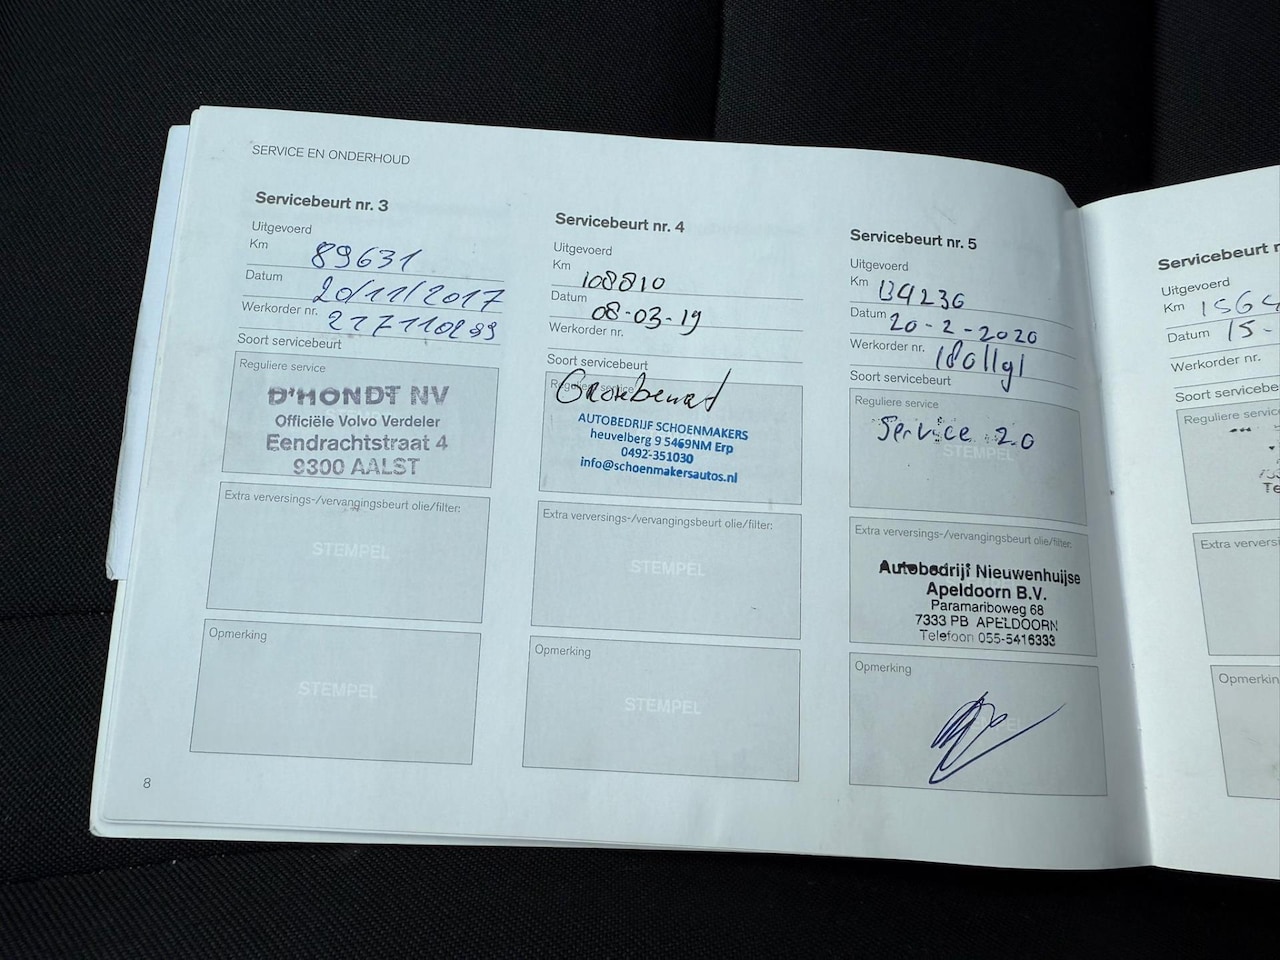 SERVICE EN ONDERHOUD
Servicebeurt nr. 3
Uitgevoerd
Km 89631
Datum 20/11/2017
Werkorder nr.
Soort servicebeurt
Reguliere service
D'HONDT NV
Officiële Volvo Verdeler
Eendrachtstraat 4
9300 AALST
Extra verversings-/vervangingsbeurt olie/filter:
STEMPEL
Opmerking
STEMPEL
8
Servicebeurt nr. 4
Uitgevoerd
Km 108810
Datum 08-03-19
Werkorder nr.
Soort servicebeurt
Reguliere service
Grote beurt
AUTOBEDRIJF SCHOENMAKERS
heuvelberg 9 5469NM Erp
0492-351030
info@schoenmakersautos.nl
Extra verversings-/vervangingsbeurt olie/filter:
STEMPEL
Opmerking
STEMPEL
Servicebeurt nr. 5
Uitgevoerd
Km 134236
Datum 20-2-2020
Werkorder nr.
Soort servicebeurt
Reguliere service
Service 2.0
STEMPEL
Extra verversings-/vervangingsbeurt olie/filter:
Autobedrijf Nieuwenhuijse
Apeldoorn B.V.
Paramariboweg 68
7333 PB APELDOORN
Telefoon 055-5416333
Opmerking
Servicebeurt
Uitgevoerd
Km
Datum 15-
Werkorder nr.
Soort
Reguliere service
Te
Extra